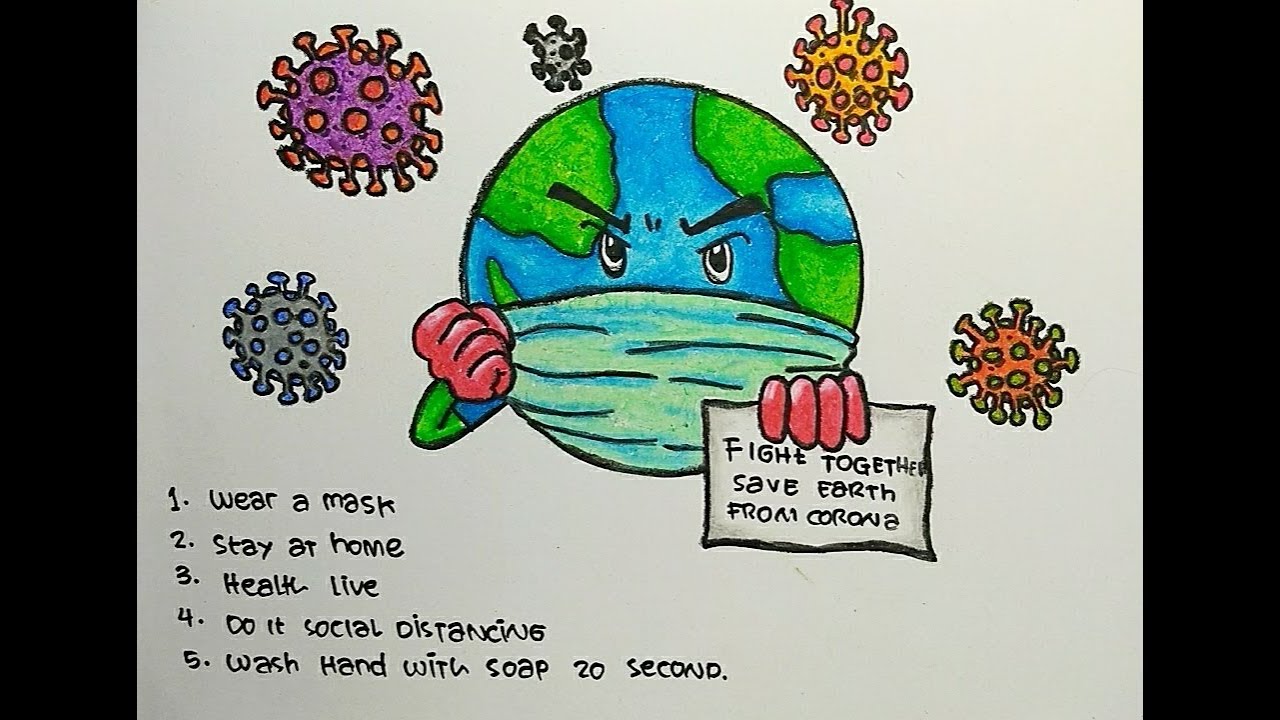 FIGHT TOGETHER
SAVE EARTH
FROM CORONA
1. wear a mask
2. Stay at home
3. Health live
4. Do it social Distancing
5. Wash Hand with soap 20 second.